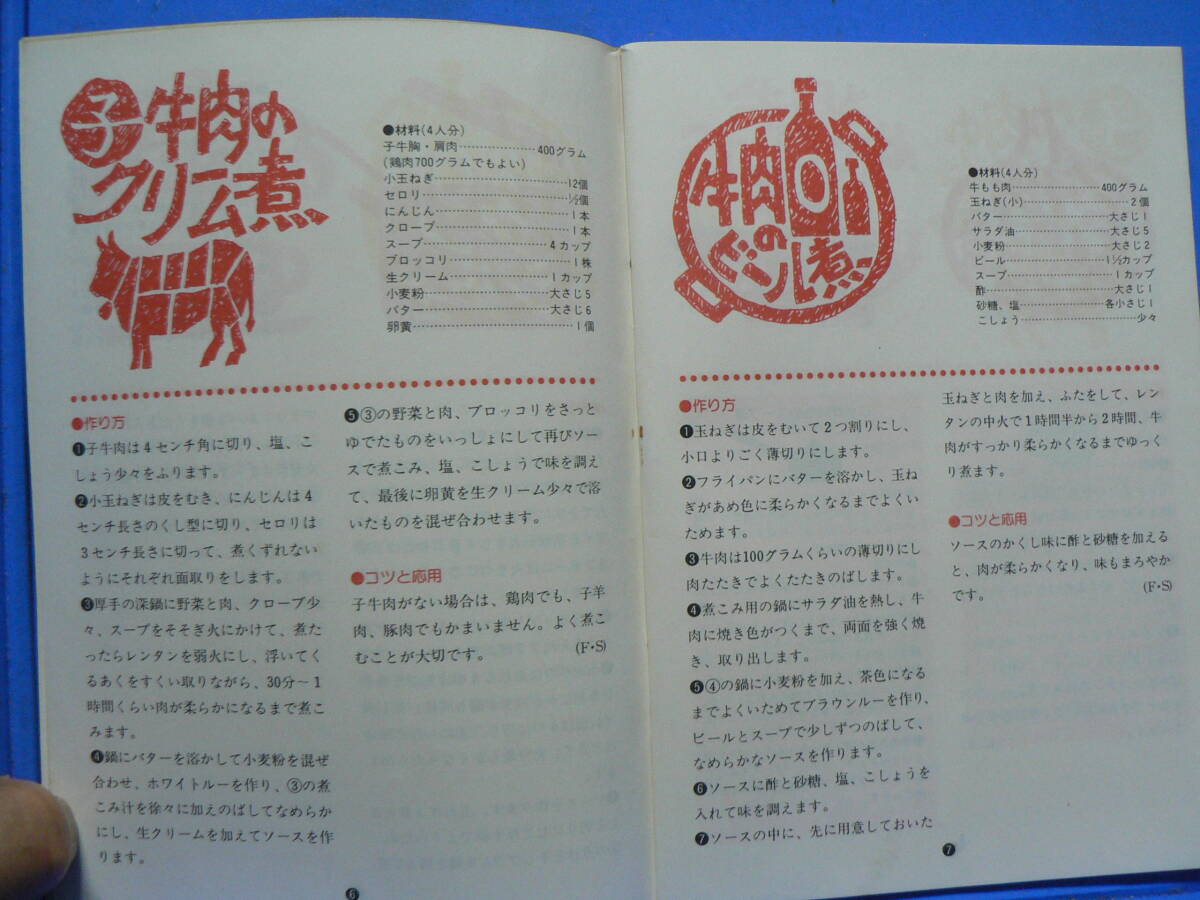 子牛肉の
クリーム煮
●材料(4人分)
子牛胸・肩肉……………400グラム
(鶏肉700グラムでもよい)
小玉ねぎ……………12個
セロリ……………½個
にんじん……………1本
クローブ……………1本
スープ……………4カップ
ブロッコリ……………1株
生クリーム……………1カップ
小麦粉……………大さじ5
バター……………大さじ6
卵黄……………1個
●作り方
❶子牛肉は4センチ角に切り、塩、こ
しょう少々をふります。
❷小玉ねぎは皮をむき、にんじんは4
センチ長さのくし型に切り、セロリは
3センチ長さに切って、煮くずれない
ようにそれぞれ面取りをします。
❸厚手の深鍋に野菜と肉、クローブ少
々、スープをそそぎ火にかけて、煮た
ったらレンタンを弱火にし、浮いてく
るあくをすくい取りながら、30分〜1
時間くらい肉が柔らかになるまで煮こ
みます。
❹鍋にバターを溶かして小麦粉を混ぜ
合わせ、ホワイトルーを作り、③の煮
こみ汁を徐々に加えのばしてなめらか
にし、生クリームを加えてソースを作
ります。
❺③の野菜と肉、ブロッコリをさっと
ゆでたものをいっしょにして再びソー
スで煮こみ、塩、こしょうで味を調え
て、最後に卵黄を生クリーム少々で溶
いたものを混ぜ合わせます。
●コツと応用
子牛肉がない場合は、鶏肉でも、子羊
肉、豚肉でもかまいません。よく煮こ
むことが大切です。 (F・S)
6
牛肉
の
ビール煮
●材料(4人分)
牛もも肉……………400グラム
玉ねぎ(小)……………2個
バター……………大さじ1
サラダ油……………大さじ5
小麦粉……………大さじ2
ビール……………1½カップ
スープ……………1カップ
酢……………大さじ1
砂糖、塩……………各小さじ1
こしょう……………少々
●作り方
❶玉ねぎは皮をむいて2つ割りにし、
小口よりごく薄切りにします。
❷フライパンにバターを溶かし、玉ね
ぎがあめ色に柔らかくなるまでよくい
ためます。
❸牛肉は100グラムくらいの薄切りにし
肉たたきでよくたたきのばします。
❹煮こみ用の鍋にサラダ油を熱し、牛
肉に焼き色がつくまで、両面を強く焼
き、取り出します。
❺④の鍋に小麦粉を加え、茶色になる
までよくいためてブラウンルーを作り、
ビールとスープで少しずつのばして、
なめらかなソースを作ります。
❻ソースに酢と砂糖、塩、こしょうを
入れて味を調えます。
❼ソースの中に、先に用意しておいた
玉ねぎと肉を加え、ふたをして、レン
タンの中火で1時間半から2時間、牛
肉がすっかり柔らかくなるまでゆっく
り煮ます。
●コツと応用
ソースのかくし味に酢と砂糖を加える
と、肉が柔らかくなり、味もまろやか
です。 (F・S)
7